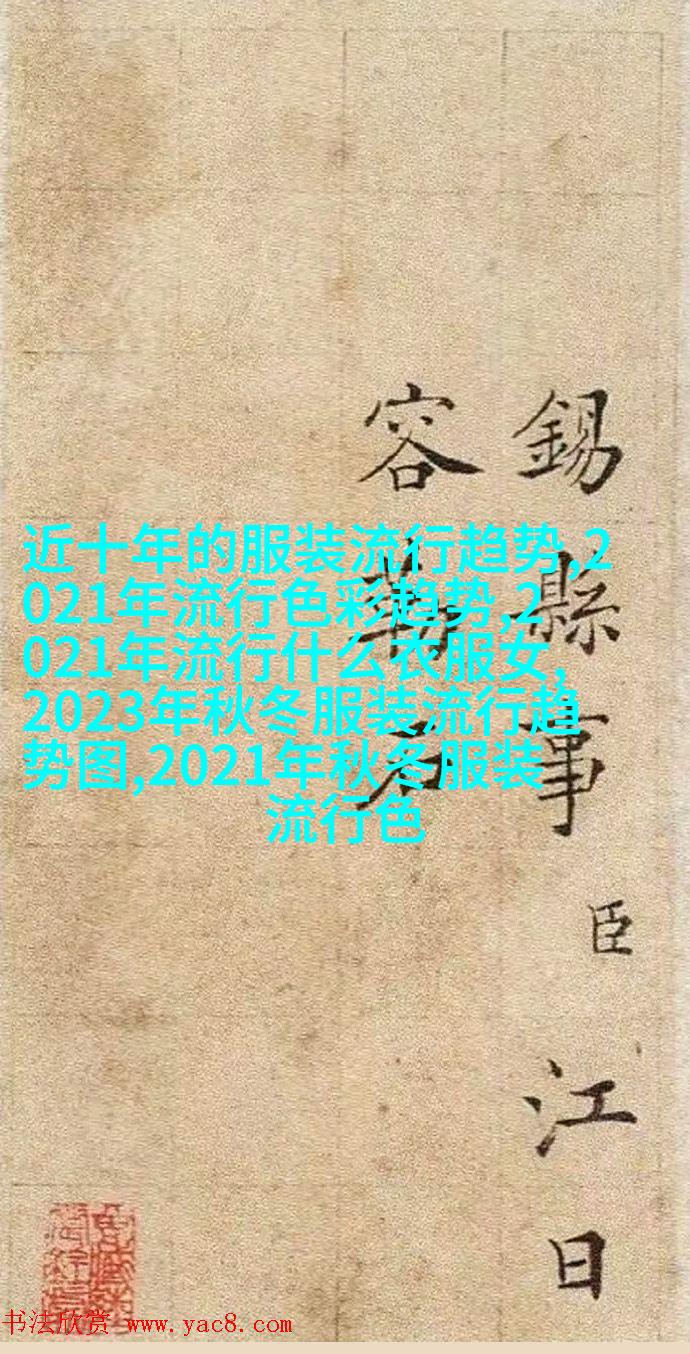 錫縣事臣江日
容
近十年的服装流行趋势,2
021年流行色彩趋势,2
021年流行什么衣服女,
2023年秋冬服装流行趋
势图,2021年秋冬服装
流行色
书法欣赏 www.yac8.com